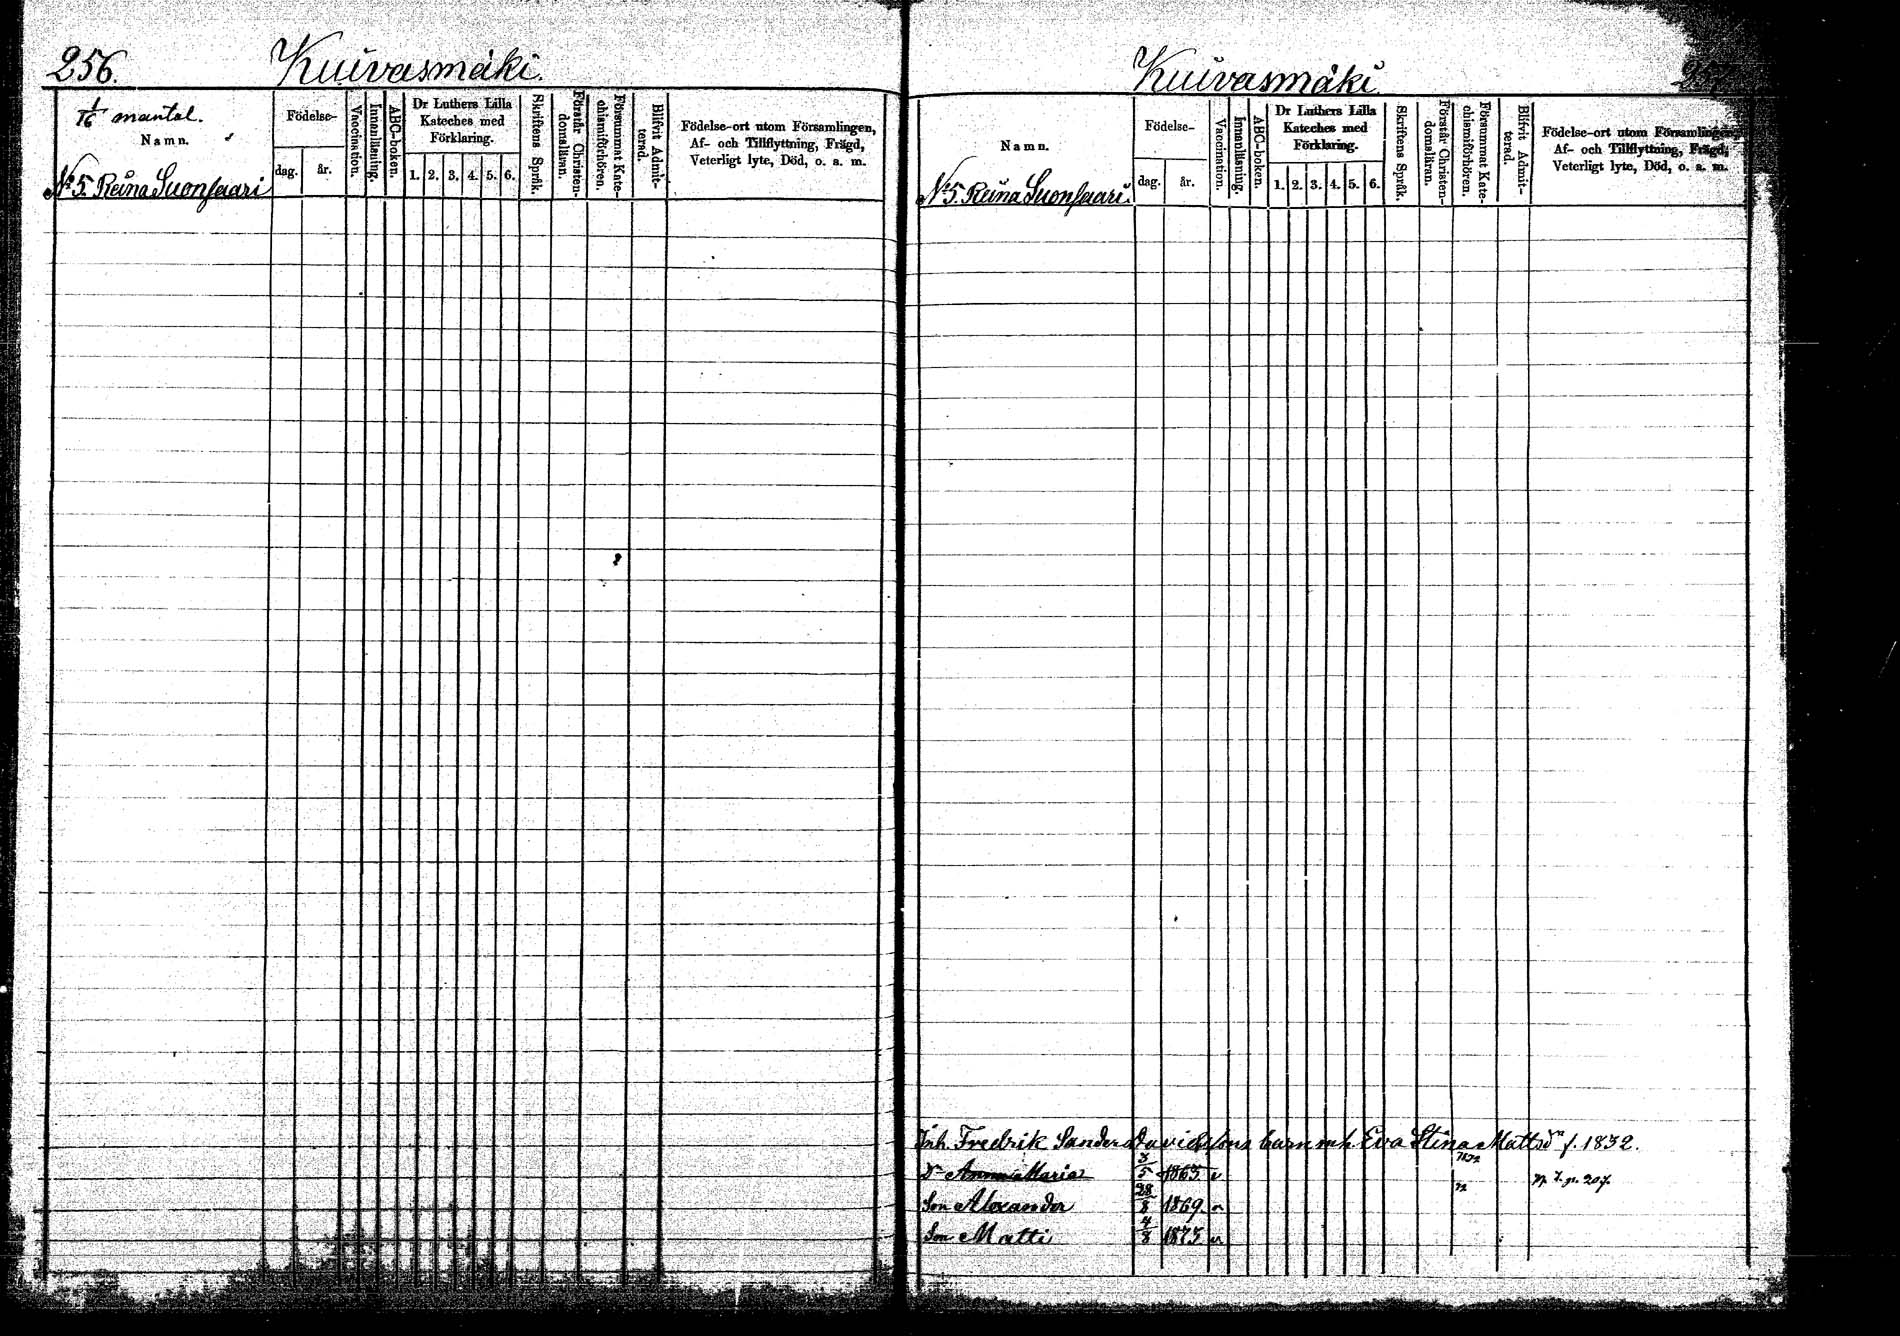 256.
Kuivasmäki.
1/16 mantal.
Namn.
No 5. Reina Suonsaari
Födelse-
dag.
år.
Vaccination.
Innanläsning.
ABC-boken.
Dr Luthers Lilla
Kateches med
Förklaring.
1. 2. 3. 4. 5. 6.
Skriftens Språk.
Förstår Christen-
domsläran.
Försummat Kate-
chismiförhören.
Blifvit Admit-
terad.
Födelse-ort utom Församlingen,
Af- och Tillflyttning, Frägd,
Veterligt lyte, Död, o. a. m.
Kuivasmäki
257.
Namn.
No 5. Reina Suonsaari.
Födelse-
dag.
år.
Vaccination.
Innanläsning.
ABC-boken.
Dr Luthers Lilla
Kateches med
Förklaring.
1. 2. 3. 4. 5. 6.
Skriftens Språk.
Förstår Christen-
domsläran.
Försummat Kate-
chismiförhören.
Blifvit Admit-
terad.
Födelse-ort utom Församlingen,
Af- och Tillflyttning, Frägd,
Veterligt lyte, Död, o. a. m.
Inh. Fredrik Sander Davidssons barn mh. Eva Stina Mattsdr f. 1832.
Dr Anna Maria 3/5 1863. v
Son Alexander 28/8 1869. v
Son Matti 4/8 1875 v